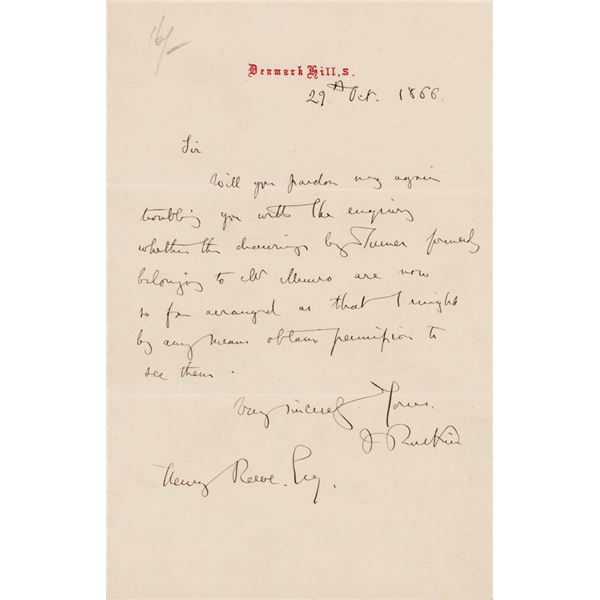 16/-
Denmark Hill, S.
29th Oct. 1866.
Sir
Will you pardon my again
troubling you with the enquiry
whether the drawings by Turner formerly
belonging to Mr Munro are now
so far arranged as that I might
by any means obtain permission to
see them.
Very sincerely Yours.
J Ruskin
Henry Reeve. Esq.